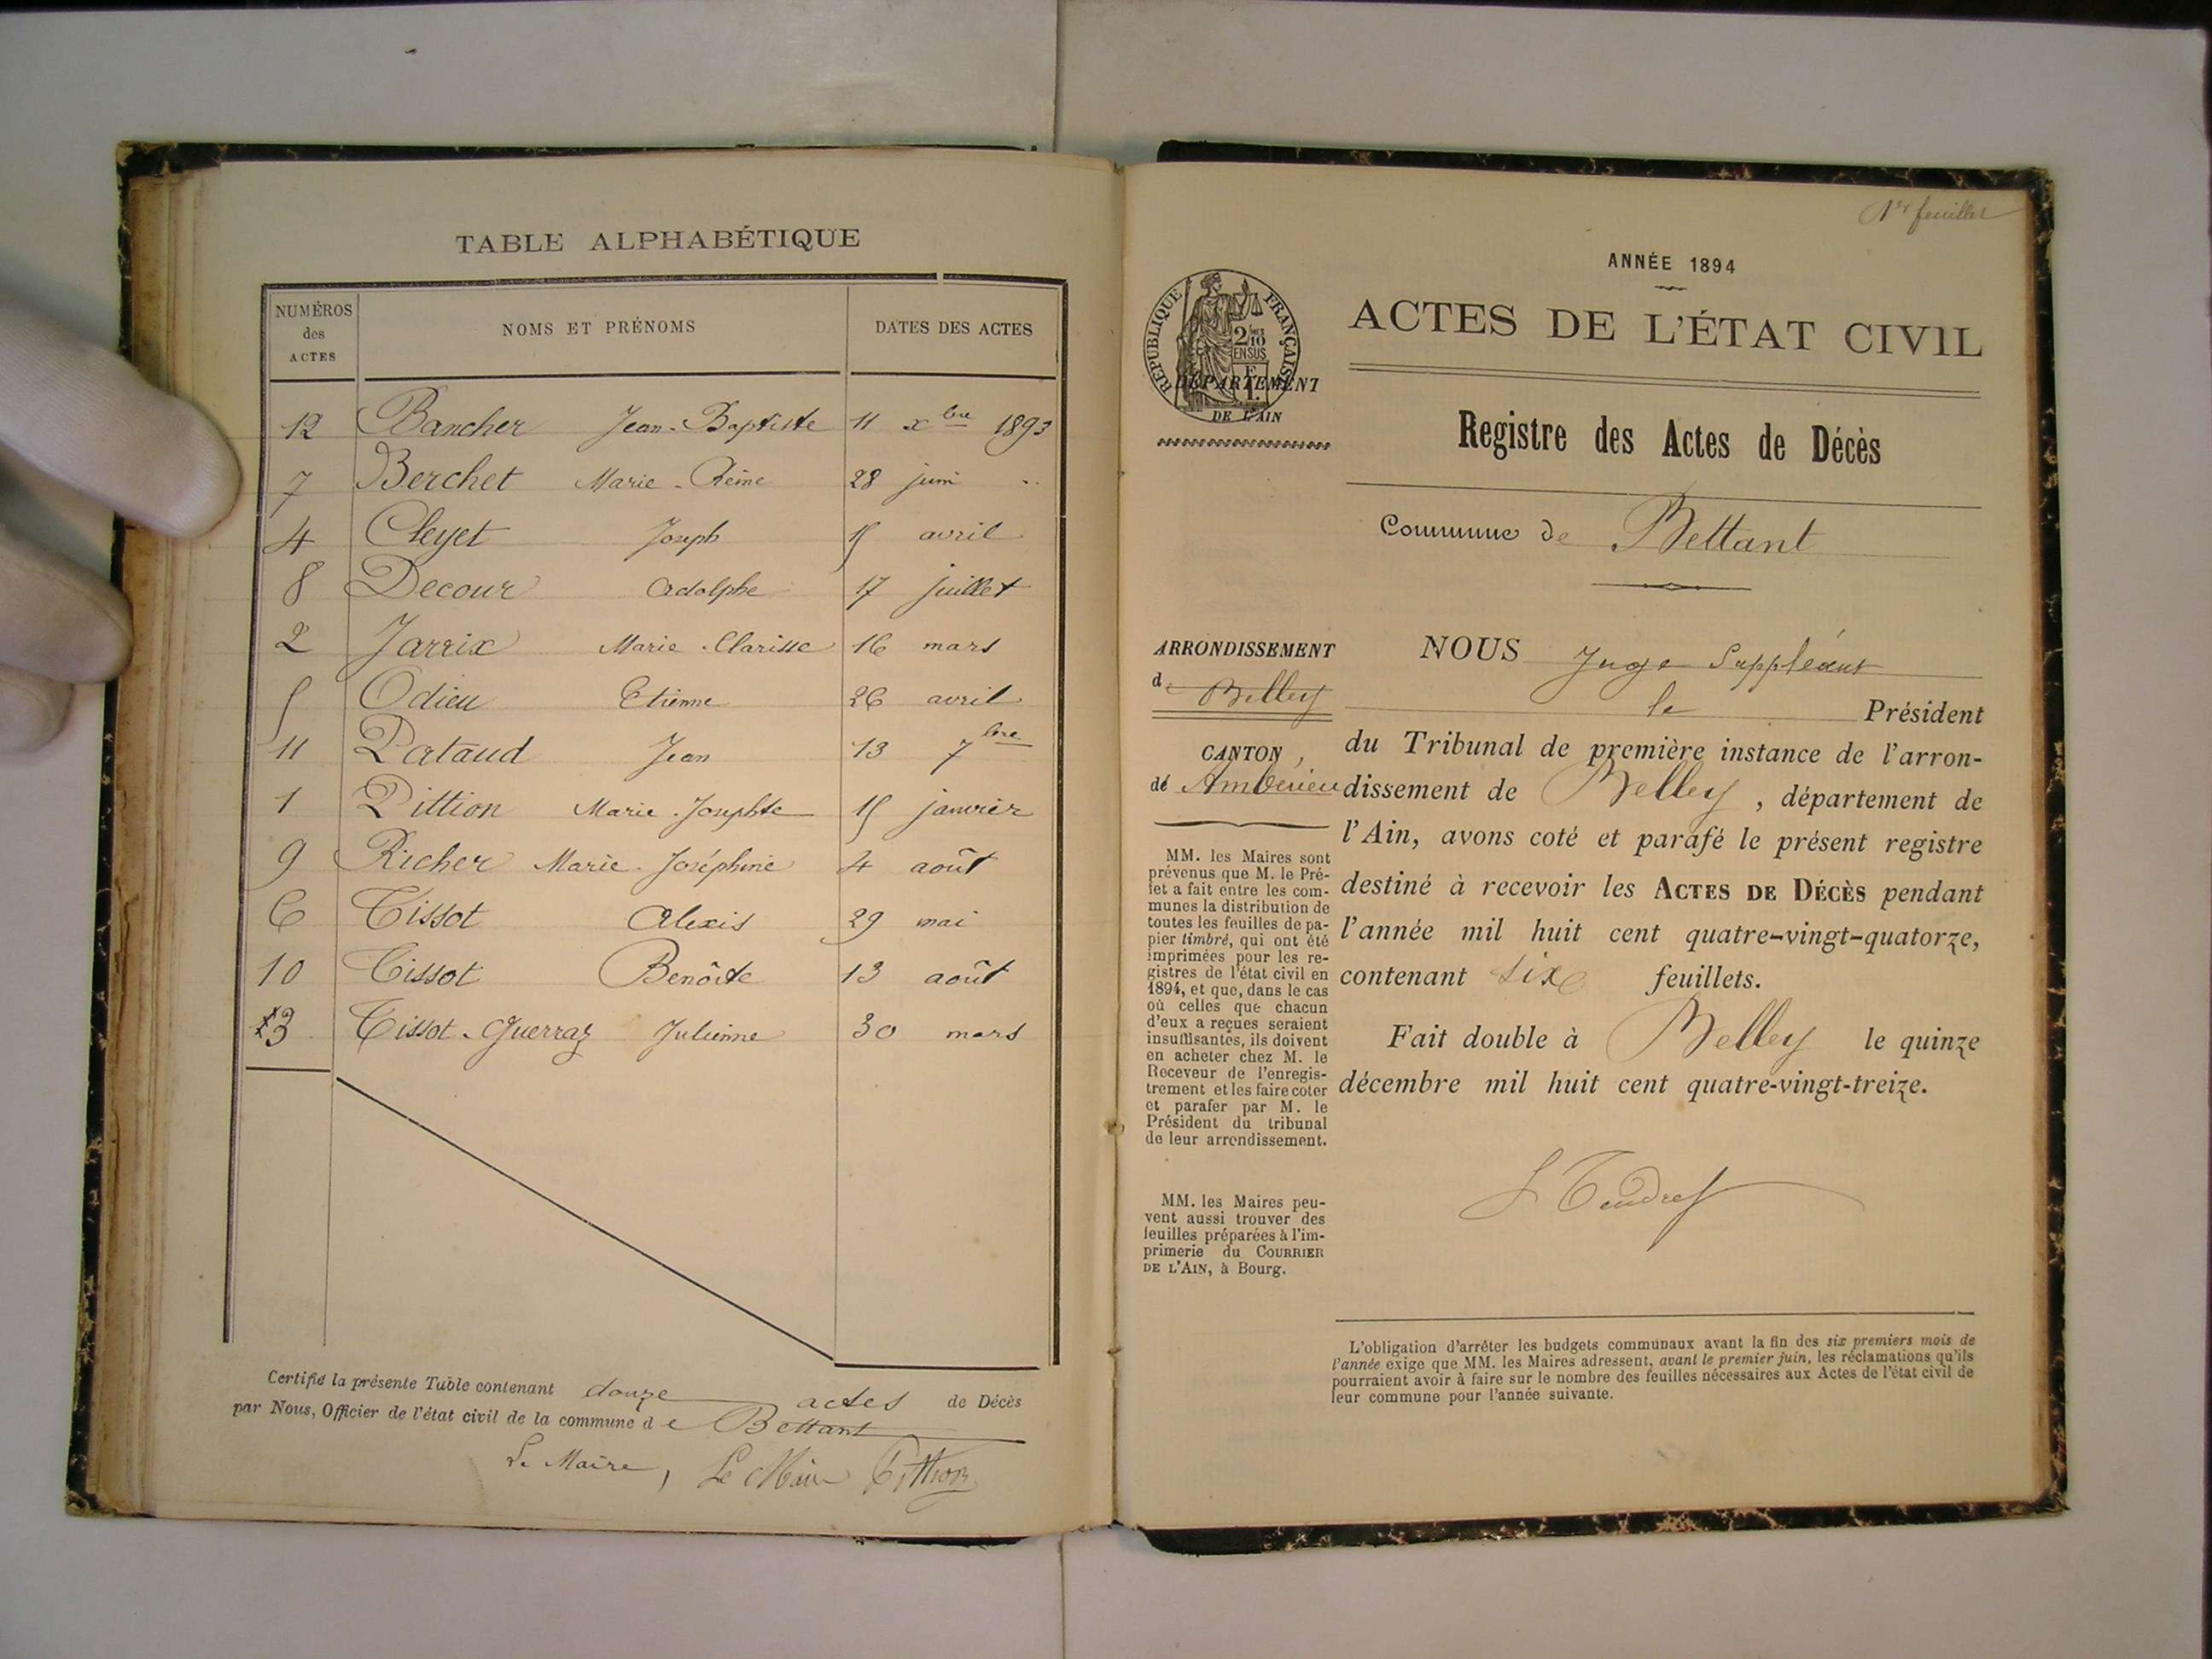 TABLE ALPHABÉTIQUE
NUMÉROS des ACTES NOMS ET PRÉNOMS DATES DES ACTES
12 Bancher Jean-Baptiste 11 xbre 1893
7 Berchet Marie-Reine 28 juin ..
4 Cleyet Joseph 15 avril
8 Decour Adolphe 17 juillet
2 Jarrix Marie-Clarisse 16 mars
5 Odieu Etienne 26 avril
11 Pataud Jean 13 7bre
1 Pittion Marie-Josephte 15 janvier
9 Richer Marie-Joséphine 4 août
6 Tissot Alexis 29 mai
10 Tissot Benôite 13 août
3 Tissot-Guerraz Julienne 30 mars
Certifié la présente Table contenant douze actes de Décès
par Nous, Officier de l'état civil de la commune de Bettant
Le Maire, Le Maire Pittion
1er feuillet
ANNÉE 1894
ACTES DE L'ÉTAT CIVIL
RÉPUBLIQUE FRANÇAISE
2/10 EN SUS
DÉPARTEMENT
DE L'AIN
Registre des Actes de Décès
Commune de Bettant
ARRONDISSEMENT
de Belley
CANTON
de Ambérieu
MM. les Maires sont
prévenus que M. le Pré-
fet a fait entre les com-
munes la distribution de
toutes les feuilles de pa-
pier timbré, qui ont été
imprimées pour les re-
gistres de l'état civil en
1894, et que, dans le cas
où celles que chacun
d'eux a reçues seraient
insuffisantes, ils doivent
en acheter chez M. le
Receveur de l'enregis-
trement et les faire coter
et parafer par M. le
Président du tribunal
de leur arrondissement.
MM. les Maires peu-
vent aussi trouver des
feuilles préparées à l'im-
primerie du COURRIER
DE L'AIN, à Bourg.
NOUS Juge Suppléant
le Président
du Tribunal de première instance de l'arron-
dissement de Belley, département de
l'Ain, avons coté et parafé le présent registre
destiné à recevoir les ACTES DE DÉCÈS pendant
l'année mil huit cent quatre-vingt-quatorze,
contenant six feuillets.
Fait double à Belley le quinze
décembre mil huit cent quatre-vingt-treize.
L'obligation d'arrêter les budgets communaux avant la fin des six premiers mois de
l'année exige que MM. les Maires adressent, avant le premier juin, les réclamations qu'ils
pourraient avoir à faire sur le nombre des feuilles nécessaires aux Actes de l'état civil de
leur commune pour l'année suivante.